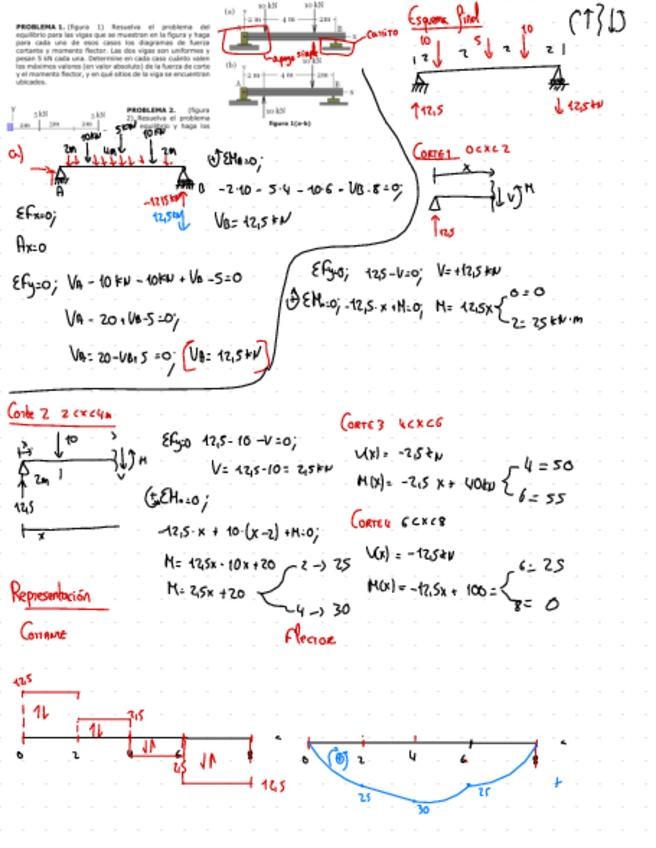 PROBLEMA 1. (figura 1) Resuelve el problema del
equilibrio para las vigas que se muestran en la figura y haga
para cada uno de esos casos los diagramas de fuerza
cortante y momento flector. Las dos vigas son uniformes y
pesan 5 kN cada una. Determine en cada caso cuánto valen
los máximos valores (en valor absoluto) de la fuerza de corte
y el momento flector, y en qué sitios de la viga se encuentran
ubicados.
(a)
2 m
4 m
2m
carrito
apoyo simple
(b)
2 m
4 m
2m
10 kN
figura 1(a-b)
Esquema final
10 5 10
2 2 2 2
↑12,5
↓ 12,5 kN
PROBLEMA 2. (figura
2) Resuelva el problema
equilibrio y haga los
5 kN
2m 3m 2m
a)
10kN 5kN 10kN
2m 4m 2m
A
B
-12,5kN
12,5kN
ΣFx=0;
Ax=0
ΣMA=0;
-2·10 - 5·4 - 10·6 - VB·8=0;
VB= 12,5 kN
ΣFy=0; VA - 10kN - 10kN + VB - 5=0
VA - 20 + VB - 5=0;
VA= 20-VB+5 =0; [VB= 12,5 kN]
CORTE 1 0<x<2
x
V M
12,5
ΣFy=0; 12,5-V=0; V=+12,5 kN
ΣM=0; -12,5·x+M=0; M= 12,5x
0=0
2= 25 kN·m
Corte 2 2<x<4m
10
2m
V M
12,5
x
ΣFy=0 12,5-10-V=0;
V= 12,5-10= 2,5kN
ΣM=0;
-12,5·x + 10·(x-2)+M=0;
M= 12,5x-10x+20
M= 2,5x+20
2 → 25
4 → 30
CORTE 3 4<x<6
V(x)= -2,5 kN
M(x)= -2,5 x + 40kN
4 = 50
6 = 55
CORTE 4 6<x<8
V(x)= -12,5kN
M(x)= -12,5x + 100=
6= 25
8= 0
Representación
Cortante
Flector
12,5
2,5
0 2 4 6 8
2,5
12,5
0 2 4 6 8
(+)
25 30 25
+